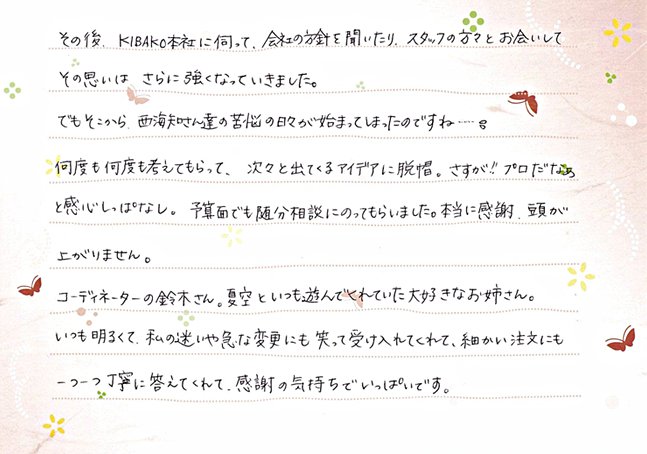 その後、KIBAKO本社に伺って、会社の方針を聞いたり、スタッフの方々とお会いして
その思いは さらに強くなっていきました。
でもそこから、西海知さん達の苦悩の日々が始まってしまったのですね……。
何度も何度も考えてもらって、次々と出てくるアイデアに脱帽。さすが!! プロだなぁ
と感心しっぱなし。予算面でも随分相談にのってもらいました。本当に感謝、頭が
上がりません。
コーディネーターの鈴木さん。夏空といつも遊んでくれていた大好きなお姉さん。
いつも明るくて、私の迷いや急な変更にも笑って受け入れてくれて、細かい注文にも
一つ一つ丁寧に答えてくれて、感謝の気持ちでいっぱいです。